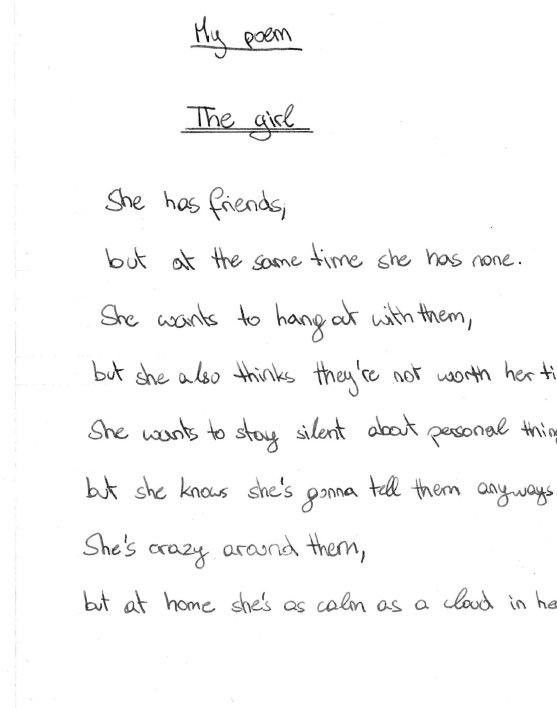 My poem
The girl
She has friends,
but at the same time she has none.
She wants to hang out with them,
but she also thinks they're not worth her ti
She wants to stay silent about personal thin
but she knows she's gonna tell them anyways.
She's crazy around them,
but at home she's as calm as a cloud in hea